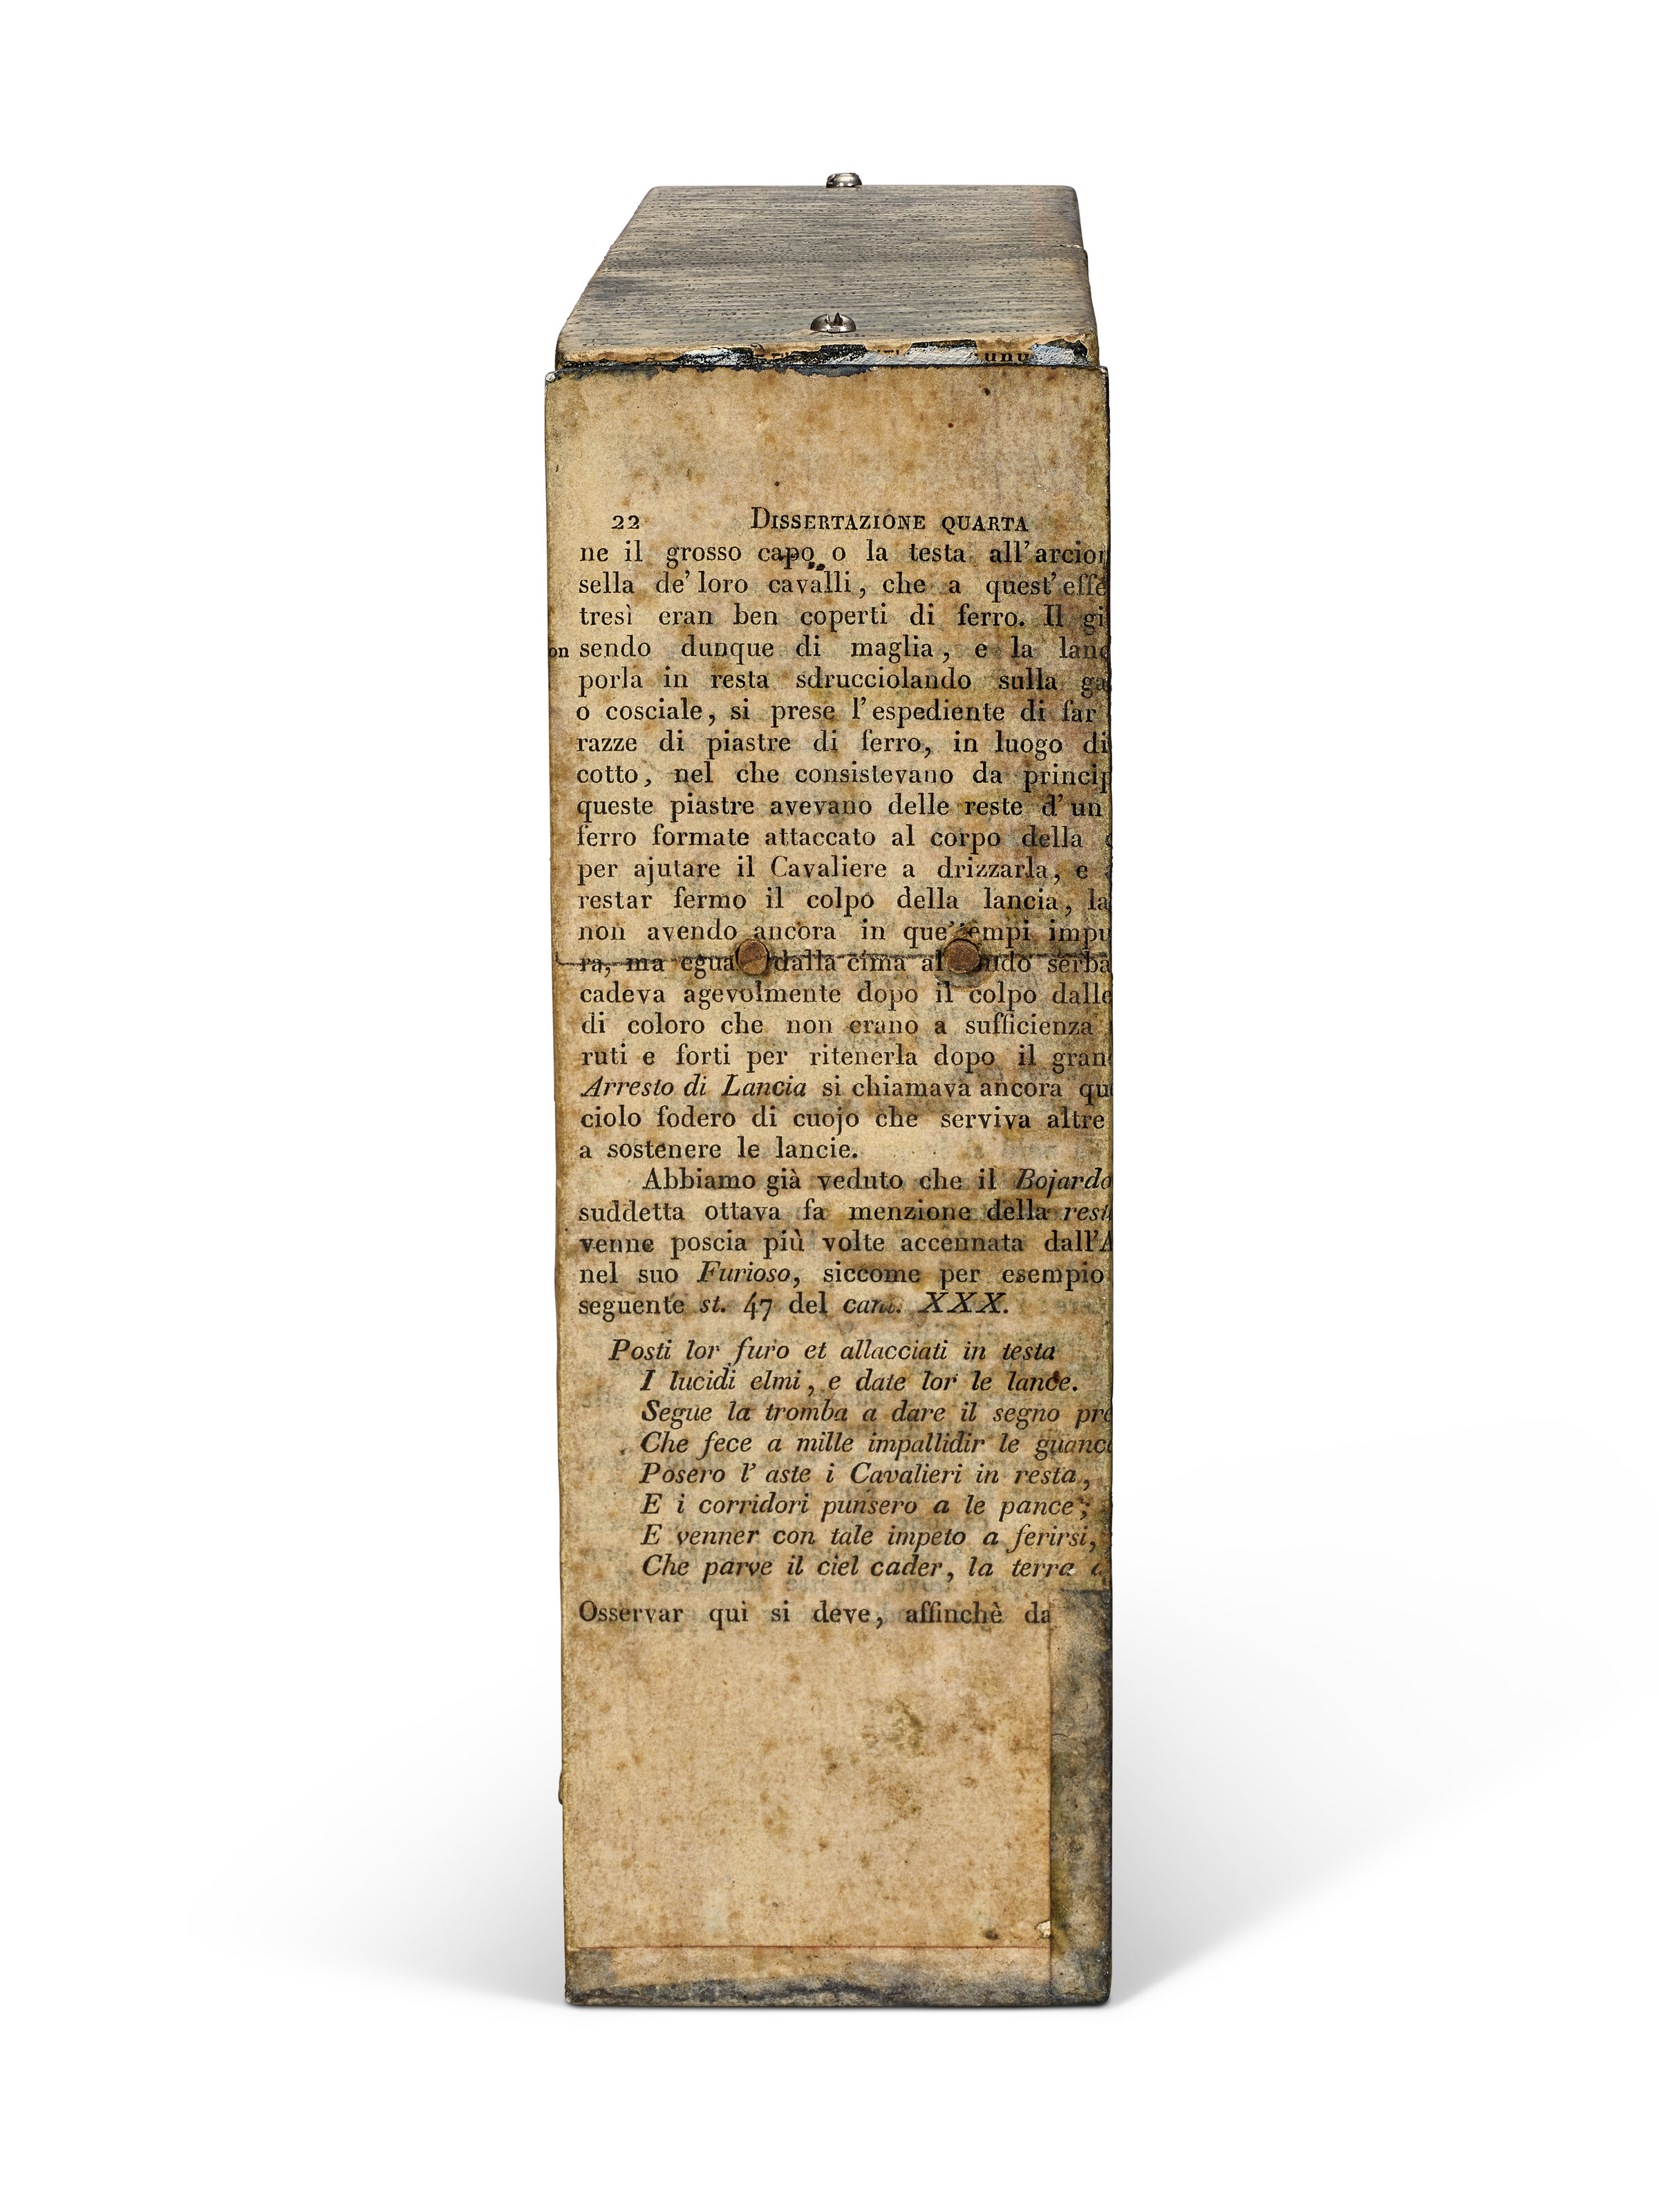 22 DISSERTAZIONE QUARTA
ne il grosso capo o la testa all'arcion
sella de' loro cavalli, che a quest' effe
tresì eran ben coperti di ferro. Il gi
on sendo dunque di maglia, e la lanc
porla in resta sdrucciolando sulla ga
o cosciale, si prese l'espediente di far
razze di piastre di ferro, in luogo di
cotto, nel che consistevano da princip
queste piastre avevano delle reste d'un
ferro formate attaccato al corpo della
per ajutare il Cavaliere a drizzarla, e
restar fermo il colpo della lancia, la
non avendo ancora in que' empi impu
ra, ma egual dalla cima al serba
cadeva agevolmente dopo il colpo dalle
di coloro che non erano a sufficienza
ruti e forti per ritenerla dopo il gran
Arresto di Lancia si chiamava ancora qu
ciolo fodero di cuojo che serviva altre
a sostenere le lancie.
Abbiamo già veduto che il Bojardo
suddetta ottava fa menzione della rest
venne poscia più volte accennata dall'A
nel suo Furioso, siccome per esempio
seguente st. 47 del cant. XXX.
Posti lor furo et allacciati in testa
I lucidi elmi, e date lor le lance.
Segue la tromba a dare il segno pre
Che fece a mille impallidir le guance
Posero l' aste i Cavalieri in resta,
E i corridori punsero a le pance;
E venner con tale impeto a ferirsi,
Che parve il ciel cader, la terra a
Osservar qui si deve, affinchè da